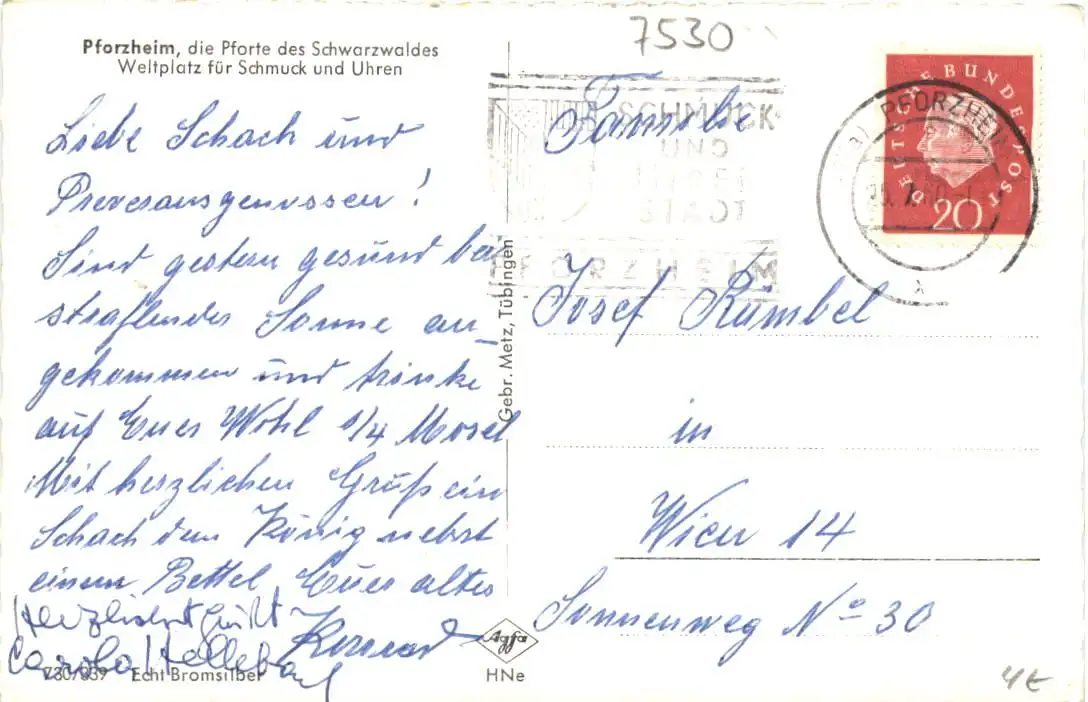 7530
Pforzheim, die Pforte des Schwarzwaldes
Weltplatz für Schmuck und Uhren
Liebe Schach und
!
Sind gestern gesund bei
strahlender Sonne an-
gekommen und trinke
auf Euer Wohl 1/4 Mosel
Mit herzlichen Gruß ein
Schach dem König nebst
einem Bettel Euer alter
Konrad
Herzlichst grüßt
Carola
730/839 Echt Bromsilber
Gebr. Metz, Tübingen
Agfa
HNe
SCHMUCK
UND
STADT
PFORZHEIM
PFORZHEIM
DEUTSCHE BUNDESPOST
20
Familie
Josef Rümbel
in
Wien 14
Sonnenweg No 30
4€